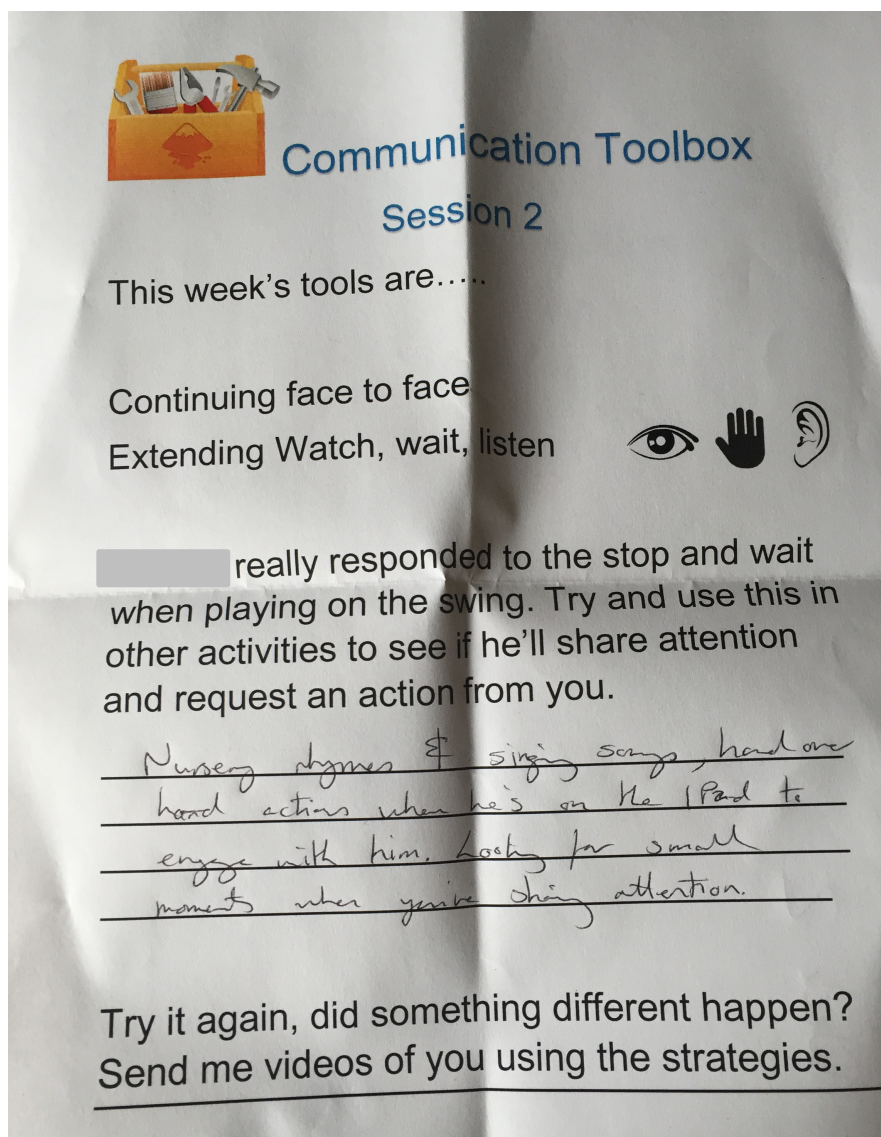 Communication Toolbox
Session 2
This week's tools are.....
Continuing face to face
Extending Watch, wait, listen
really responded to the stop and wait
when playing on the swing. Try and use this in
other activities to see if he'll share attention
and request an action from you.
Nursery rhymes & singing songs, hand over
hand actions when he's on the IPad to
engage with him. Looking for small
moments when you're sharing attention.
Try it again, did something different happen?
Send me videos of you using the strategies.